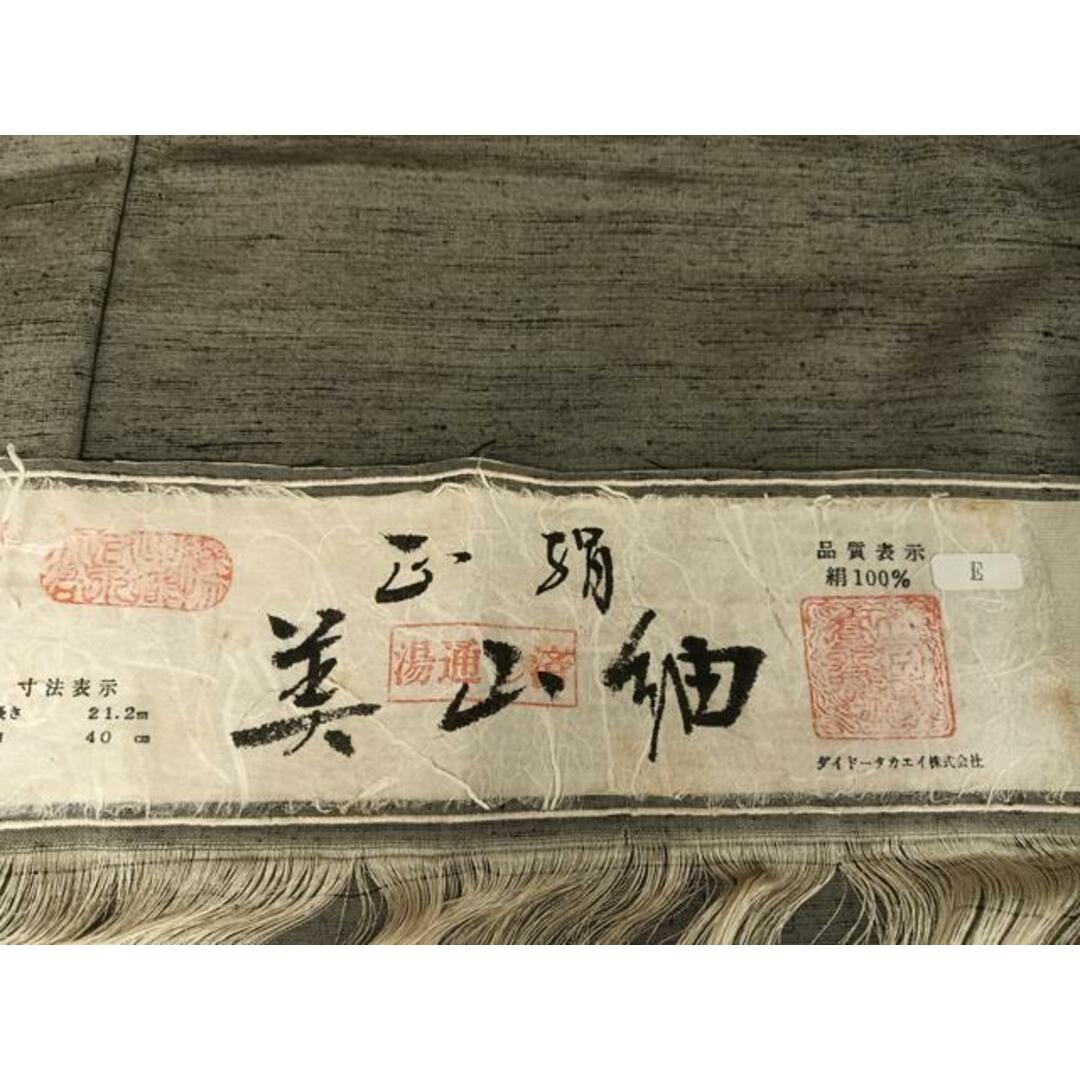 正絹
美山紬
湯通し済
品質表示
絹100%
E
ダイドータカエイ株式会社
寸法表示
長さ 21.2m
40 cm